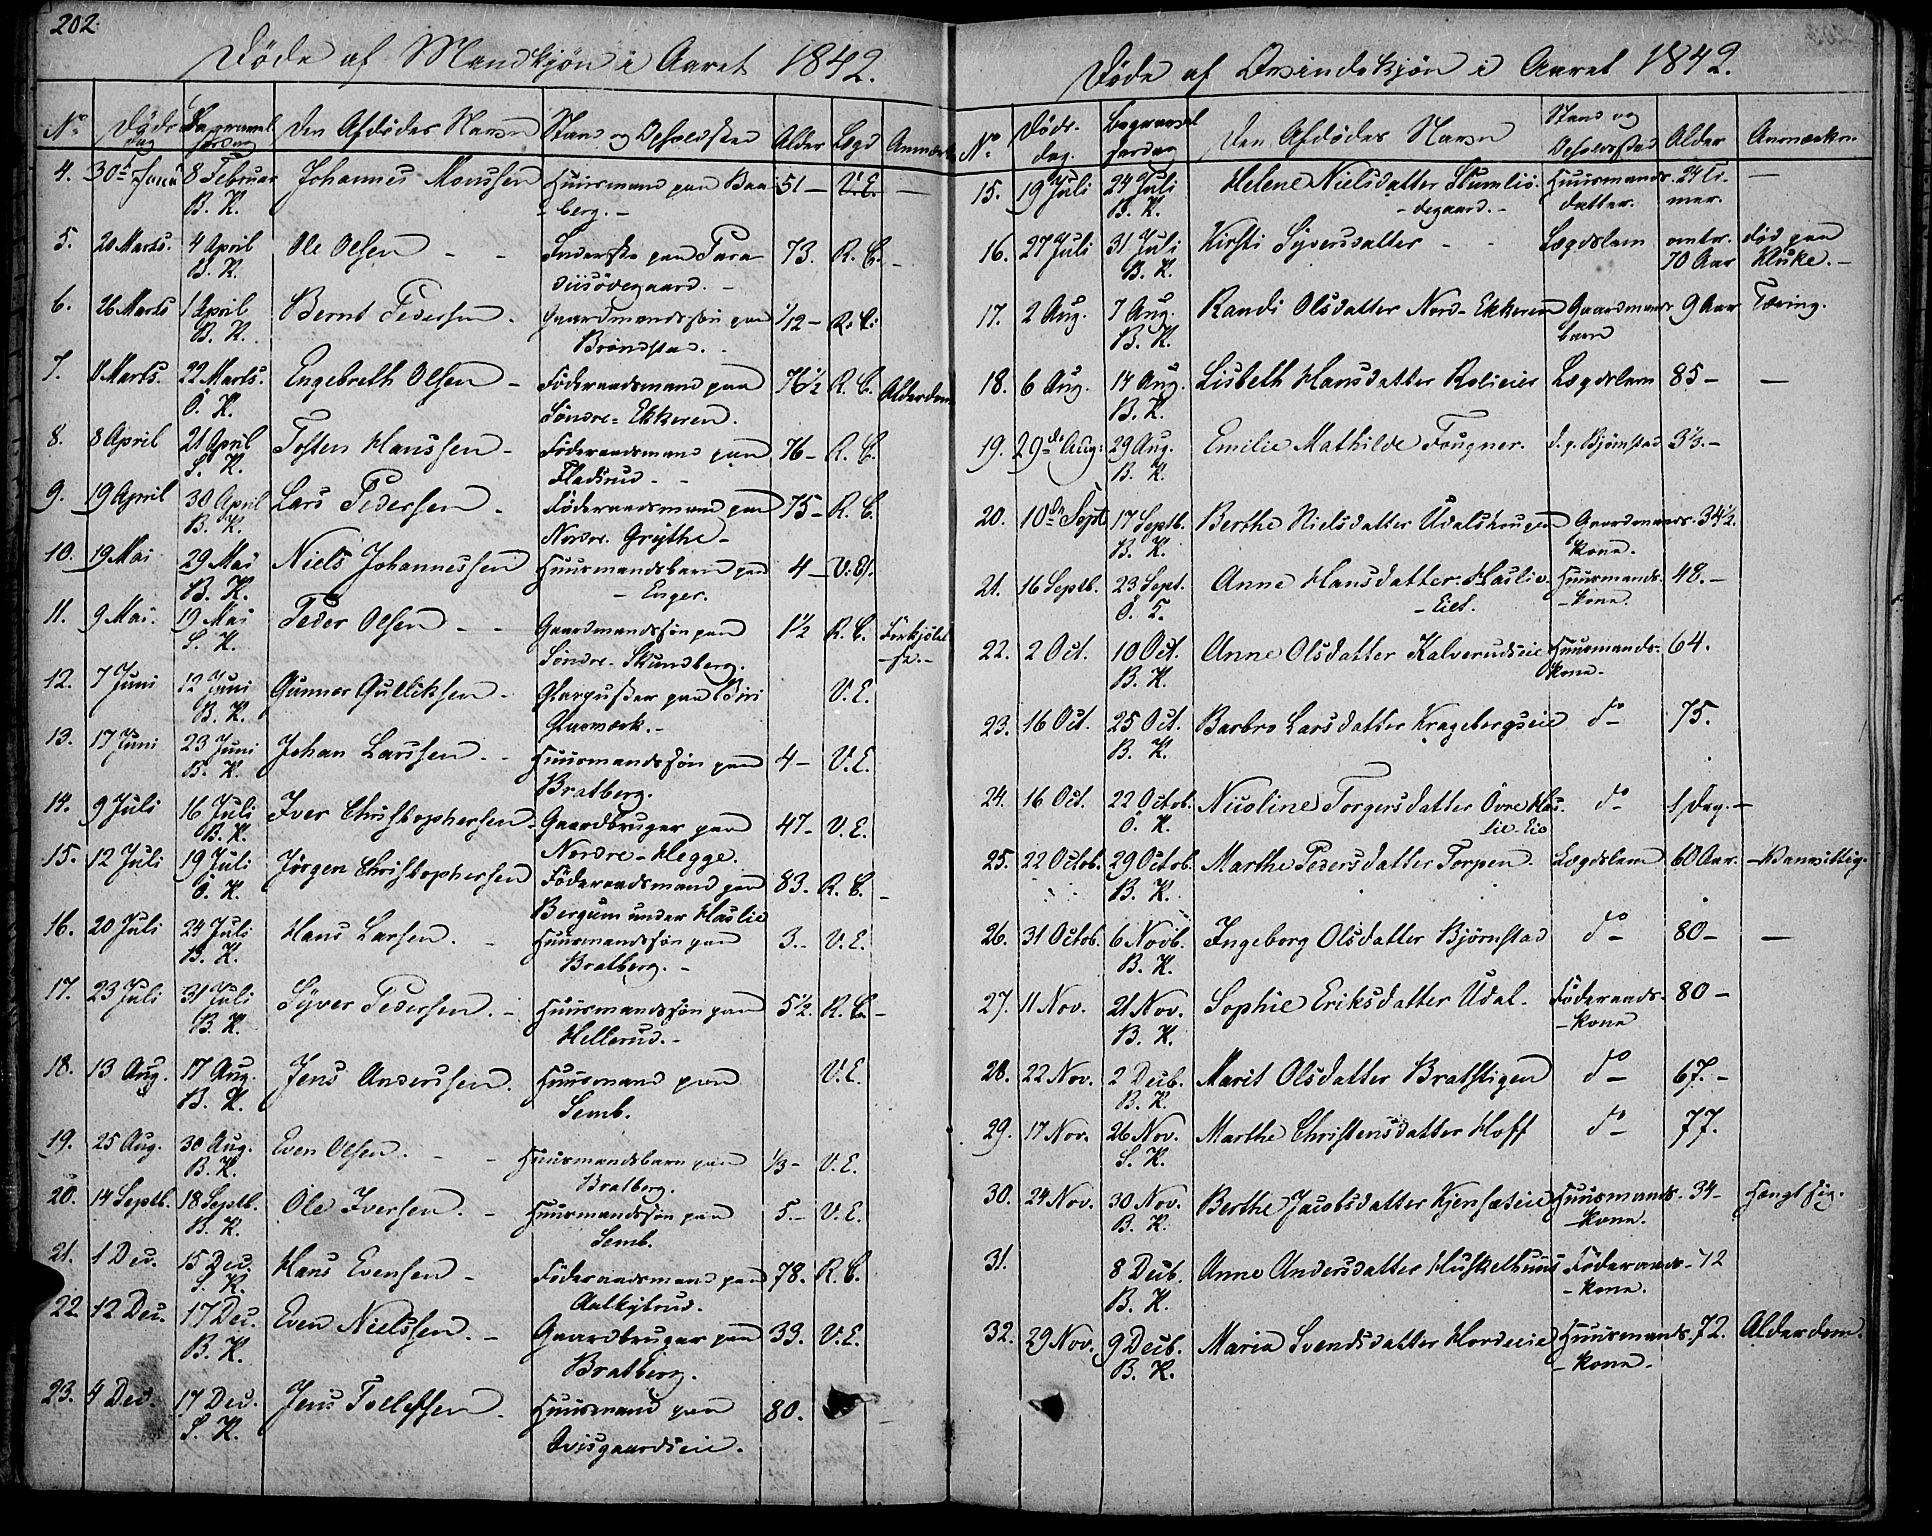 202.
Døde af Mandkjøn i Aaret 1842.
No Døds dag Begravelsesdag Den Afdødes Navn Stand og Opholdssted Alder Lægd Anmærk.
4. 30te Janu 8 Februar Johannes Monssen Huusmand paa Baa 51 – V.E. –
B. K. berg. –
5. 20 Marts. 4 April Ole Olsen – – paa Para 73. R. C. –
B. K. diisövegaard. –
6. 26 Marts 1 April Bernt Pedersen. Gaardmandssøn paa 1/12 – R. C.
B. K. Bröndstad. –
7. 11 Marts. 22 Marts. Engebreth Olsen – Föderaadsmand paa 76 1/2 R. C. Alderdom
Ö. K. Söndre-Ekkeren.
8. 8 April 21 April Tosten Hanssen – Föderaadsmand paa 76 – R. C.
S. K. Fladsrud. –
9. 19 April 30 April Lars Pedersen. – Föderaadsmand paa 75 – R. C.
B. K. Nordre Grythe –
10. 19 Mai 29 Mai Niels Johannessen Huusmandsbarn paa 4 – V. E.
B. K. – Enger.
11. 9 Mai. 19 Mai Peder Olsen – – Gaardmandssøn paa 1 1/2 R. C. Forkjølel
S. K. Söndre-Skundberg. – se. –
12. 7 Juni 12 Juni Gunner Gulliksen – Glaspuster paa Biri V. E.
B. K. Glasværk. –
13. 17 Juni 23 Juni Johan Larssen. – Huusmandssøn paa 4 – V. E.
B. K. Bratberg.
14. 9 Juli 16 Juli Iver Christophersen. Gaardbruger paa 47 – V. E.
B. K. Nordre-Hegge.
15. 12 Juli 19 Juli Jörgen Christophersen Föderaadsmand paa 83. R. C. –
Ö. K. Bergum under Haslie
16. 20 Juli 24 Juli Hans Larsen. – Huusmandssøn paa 3. – V. E.
B. K. Bratberg. –
17. 23 Juli 31 Juli Syver Pedersen. – Huusmandssøn paa 5 1/2. R. C. –
B. K. Hellerud. –
18. 13 Aug. 17 Aug. Jens Anderssen. Huusmand paa V. E.
B. K. Semb.
19. 25 Aug. 30 Aug. Even Olsen. – – Huusmandsbarn paa 1/3 – V. E.
B. K. Bratberg.
20. 14 Septb. 18 Septb. Ole Iversen. – Huusmandssøn paa 5. – V. E.
B. K. Semb.
21. 1 Dec. 15 Dec. Hans Evensen – Föderaadsmand paa 78. R. C.
S. K.
22. 12 Dec. 17 Dec. Even Nielssen. – Gaardbruger paa 33. V. E.
B. K. Bratberg.
23. 4 Dec. 17 Dec. Jens Tollefsen. Huusmand paa 80.
S. K. Qvisgaardseie.
Døde af Qvindekjøn i Aaret 1842.
No. Døds-dag. Begravelsesdag Den Afdødes Navn Stand og Opholdssted Alder Anmærkn.
15. 19 Juli 24 Juli Helene Nielsdatter Stumlio- Huusmands- 24 Ti- –
B. K. – degaard. – datter. mer.
16. 27 Juli 31 Juli Kirsti Syversdatter – – Lægdslem omtr. død paa
B. K. 70 Aar Kluke. –
17. 2 Aug. 7 Aug. Randi Olsdatter Nord-Ekkeren Gaardmands- 9 Aar Tæring.
B. K. barn
18. 6 Aug. 14 Aug. Lisbeth Hansdatter Rolieie Lægdslem 85 – –
B. K.
19. 29de Aug: 29 Aug. Emilie Mathilde Fougner. d. p. Bjørnstad 3 1/3. –
B. K.
20. 10de Sept 17 Septb. Berthe Nielsdatter Udalshougen Gaardmands- 34 1/2.
B. K. kone.
21. 16 Septb. 23 Sept. Anne Hansdatter Haslie- Huusmands- 48. –
– Eiet. – kone.
22. 2 Oct. 10 Oct. Anne Olsdatter Kalverudseie Huusmands- 64.
B. K. kone.
23. 16 Oct. 25 Oct. Barbro Larsdatter Kragebergseie do – 75.
B. K.
24. 16 Oct. 22 Octob. Nicoline Torgersdatter Övre Has- do – 1 Dag. –
Ö. K. lie-Eie
25. 22 Octob. 29 Octob. Marthe Pedersdatter Torpen. Lægdslem 60 Aar. – Vanvittig.
B. K.
26. 31 Octob. 6 Novb. Ingeborg Olsdatter Bjørnstad do – 80 – –
B. K.
27. 11 Nov. 21 Nov. Sophie Eriksdatter Udal. Föderaads- 80 –
B. K. – kone
28. 22 Nov. 2 Decb. Marit Olsdatter Bratstigen do – 67. –
B. K.
29. 17 Nov. 26 Nov. Marthe Christensdatter Hoff do – 77.
S. K.
30. 24 Nov. 30 Nov. Berthe Jacobsdatter Kjensæteie Huusmands- 34 – Hængt sig.
B. K. – kone.
31. 8 Decb. Anne Andersdatter Huskelhuus Föderaads- 72
B. K. – kone.
32. 29 Nov. 9 Decb. Maria Svendsdatter Hordeeie Huusmands- 72. Alderdom.
B. K. – kone.